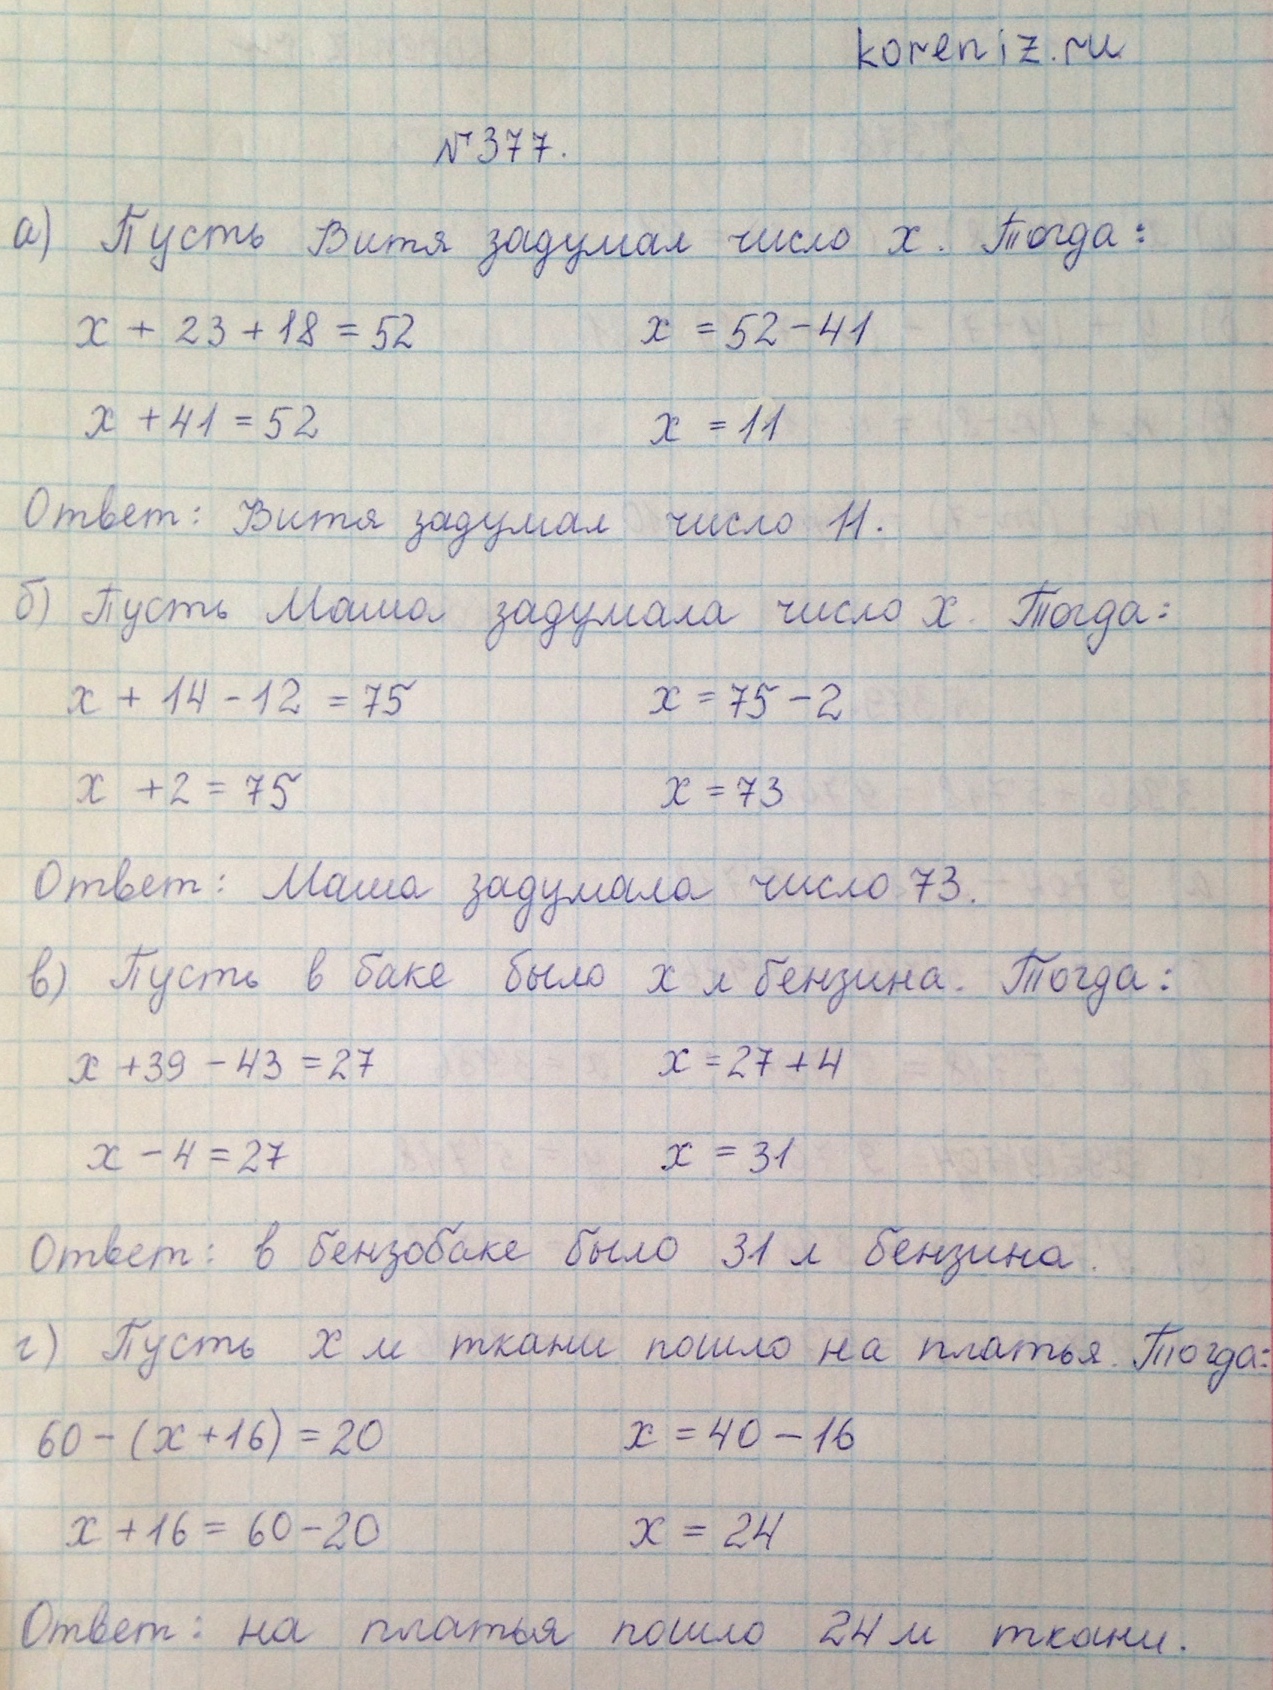 koreniz.ru
№377.
а) Пусть Витя задумал число x. Тогда:
x + 23 + 18 = 52 x = 52 - 41
x + 41 = 52 x = 11
Ответ: Витя задумал число 11.
б) Пусть Маша задумала число x. Тогда:
x + 14 - 12 = 75 x = 75 - 2
x + 2 = 75 x = 73
Ответ: Маша задумала число 73.
в) Пусть в баке было x л бензина. Тогда:
x + 39 - 43 = 27 x = 27 + 4
x - 4 = 27 x = 31
Ответ: в бензобаке было 31 л бензина.
г) Пусть x м ткани пошло на платья. Тогда:
60 - (x + 16) = 20 x = 40 - 16
x + 16 = 60 - 20 x = 24
Ответ: на платья пошло 24 м ткани.